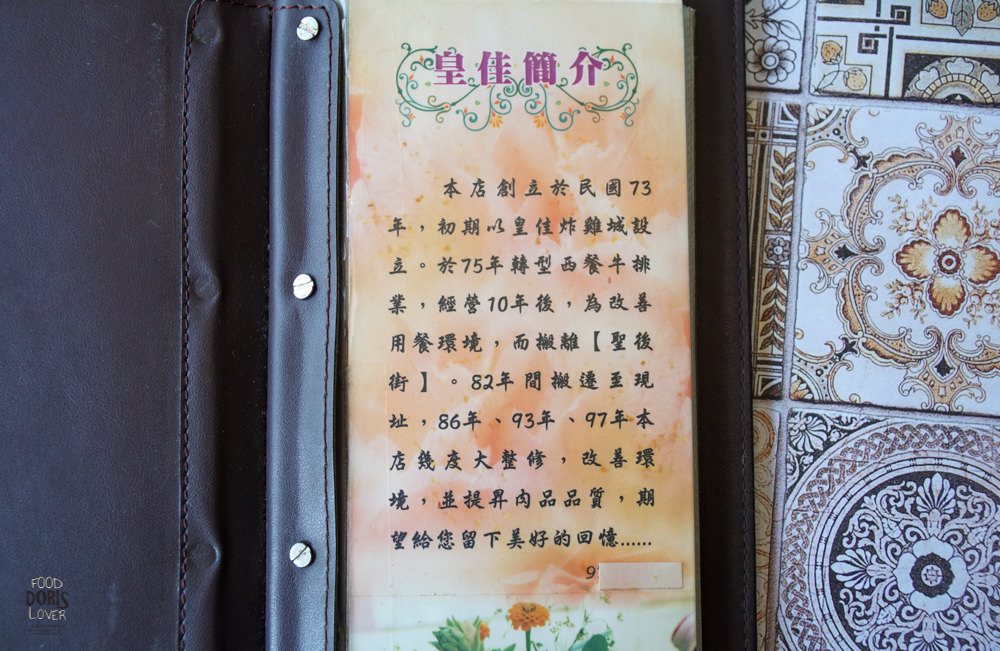 皇佳簡介
本店創立於民國73
年，初期以皇佳炸雞城設
立。於75年轉型西餐牛排
業，經營10年後，為改善
用餐環境，而搬離【聖後
街】。82年間搬遷至現
址，86年、93年、97年本
店幾度大整修，改善環
境，並提昇肉品品質，期
望給您留下美好的回憶......
9
FOOD
DORIS
LOVER